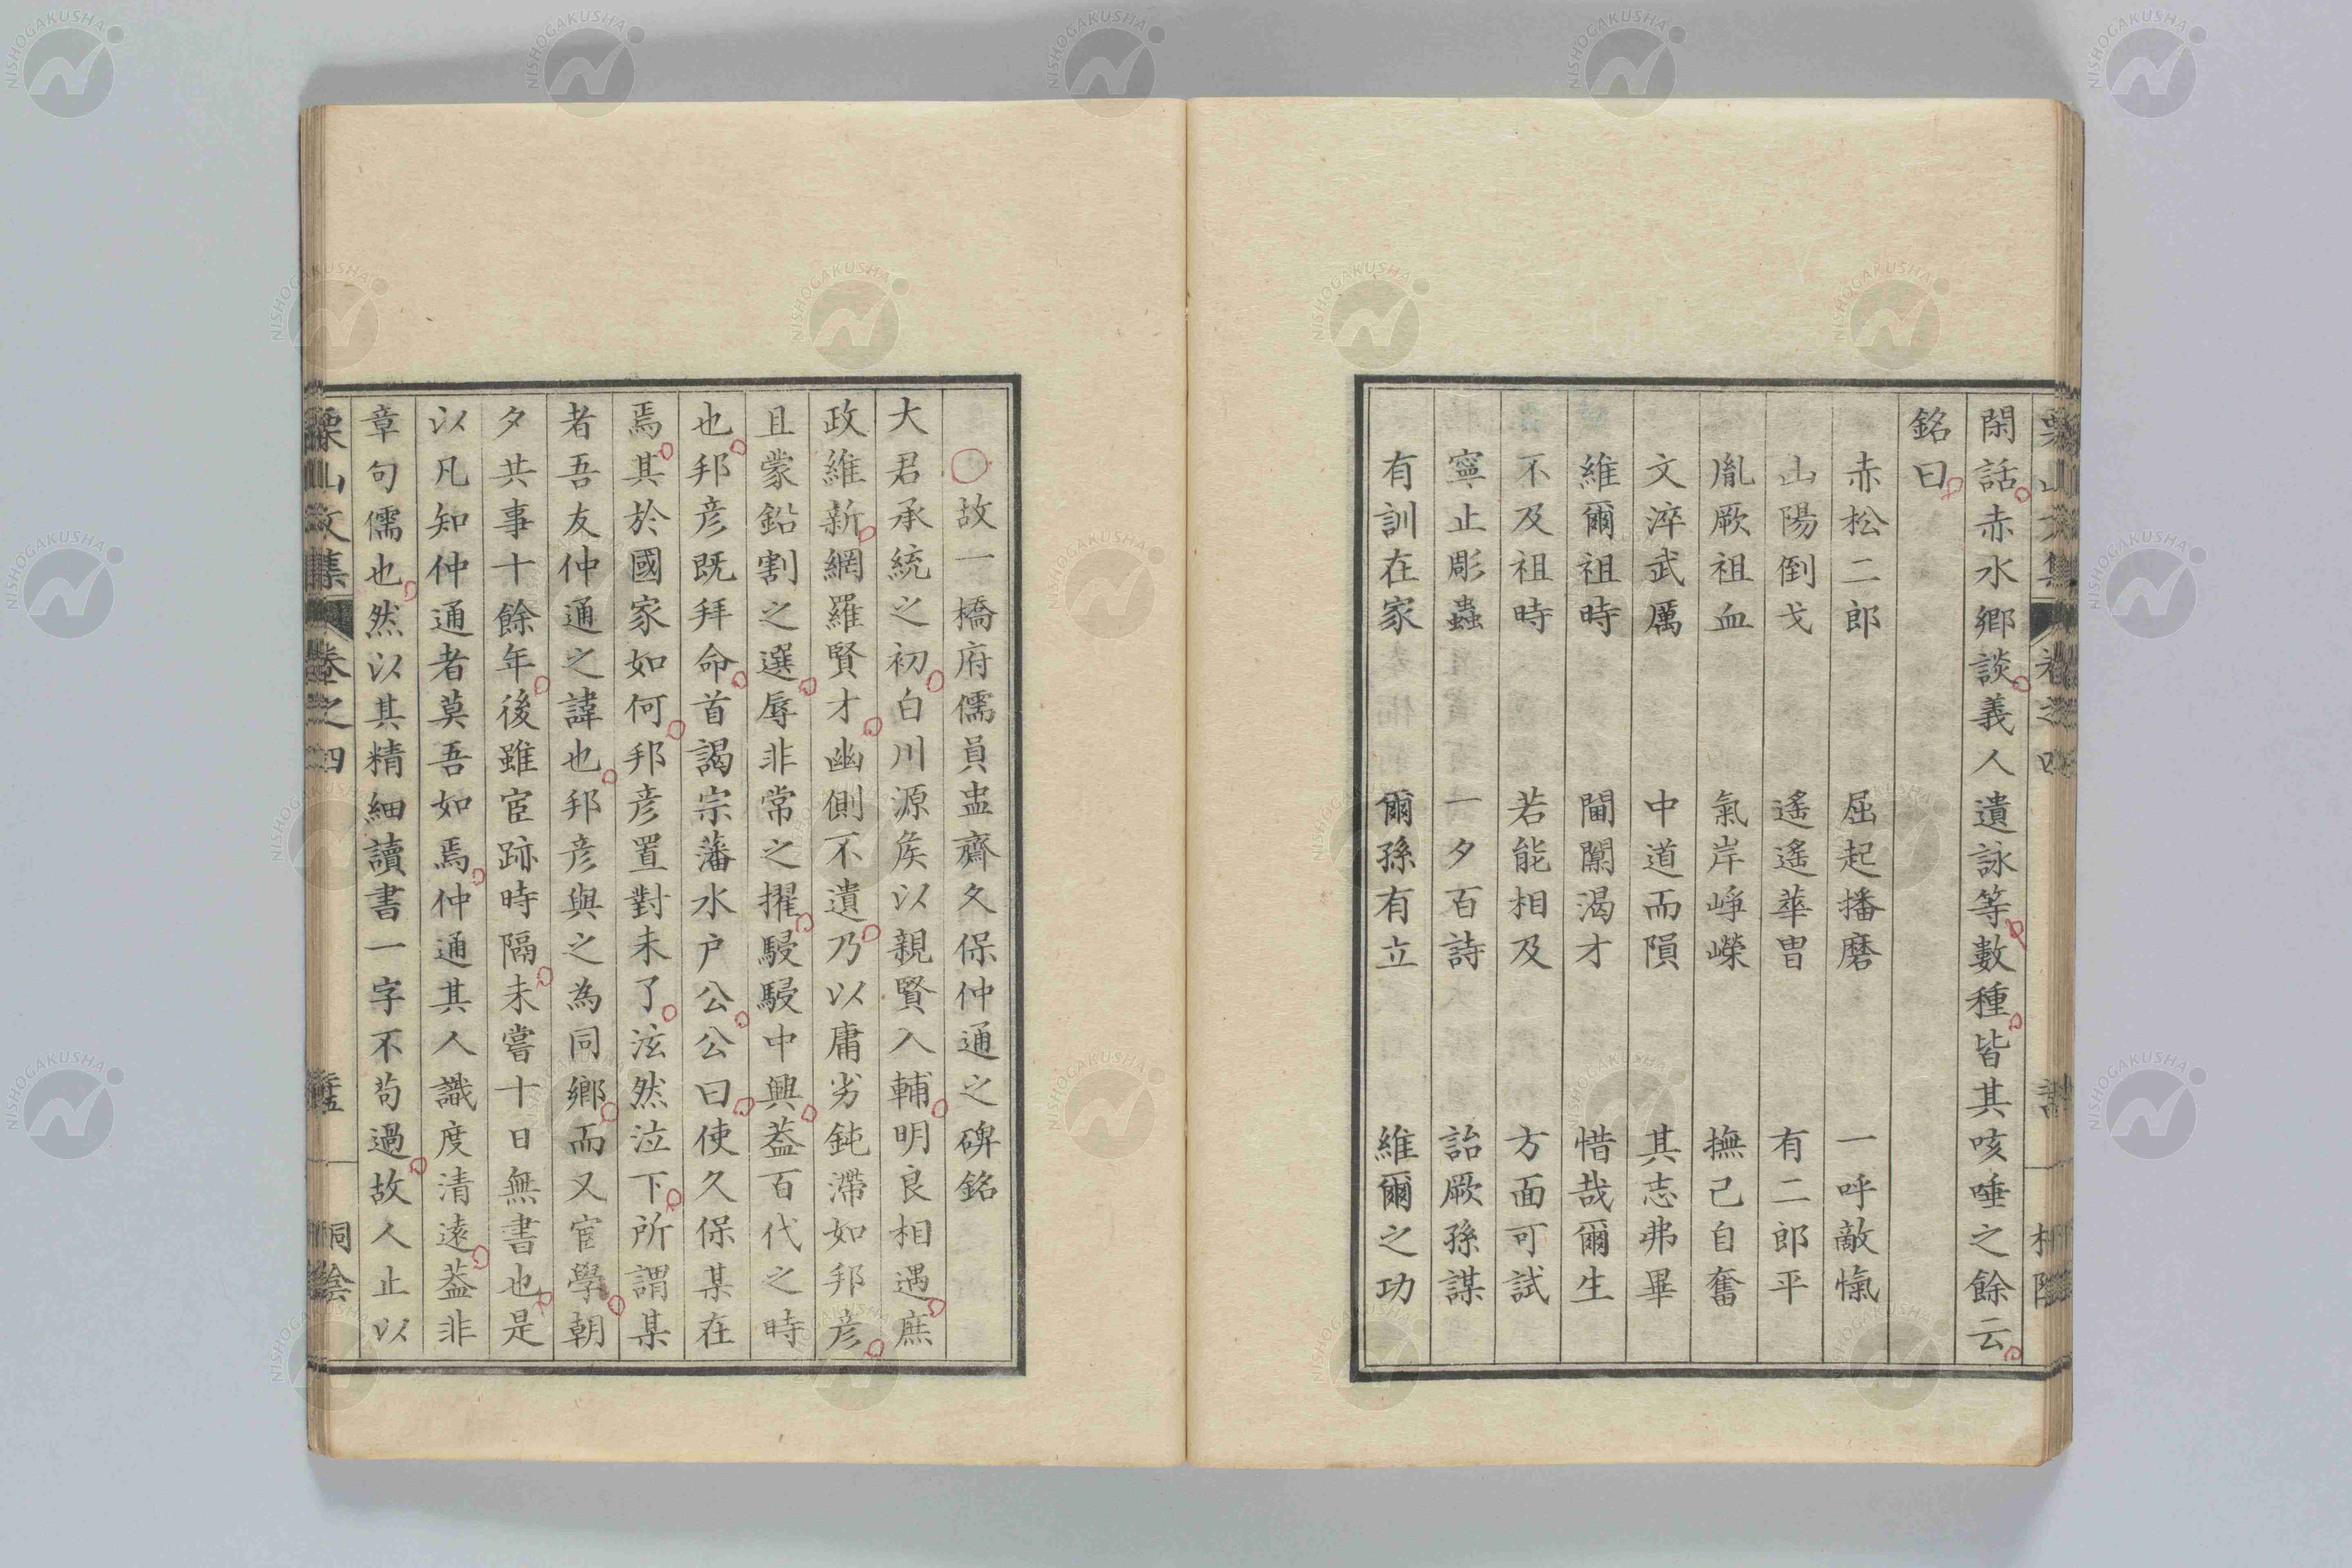 閑話赤水鄉談義人遺詠等數種皆其咳唾之餘云
銘曰
赤松二郎 屈起播磨 一呼敵愾
山陽倒戈 遙遙華冑 有二郎平
胤厥祖血 氣岸崢嶸 撫己自奮
文淬武厲 中道而隕 其志弗畢
維爾祖時 閫闑渴才 惜哉爾生
不及祖時 若能相及 方面可試
寧止彫蟲 一夕百詩 詒厥孫謀
有訓在家 爾孫有立 維爾之功
故一橋府儒員盅齋久保仲通之碑銘
大君承統之初白川源矦以親賢入輔明良相遇庶
政維新網羅賢才幽側不遺乃以庸劣鈍滯如邦彥
且蒙鉛割之選辱非常之擢駸駸中興葢百代之時
也邦彥既拜命首謁宗藩水戶公公曰使久保某在
焉其於國家如何邦彥置對未了泫然泣下所謂某
者吾友仲通之諱也邦彥與之為同鄉而又宦學朝
夕共事十餘年後雖宦跡時隔未嘗十日無書也是
以凡知仲通者莫吾如焉仲通其人識度清遠葢非
章句儒也然以其精細讀書一字不苟過故人止以
栗山文集 卷之四